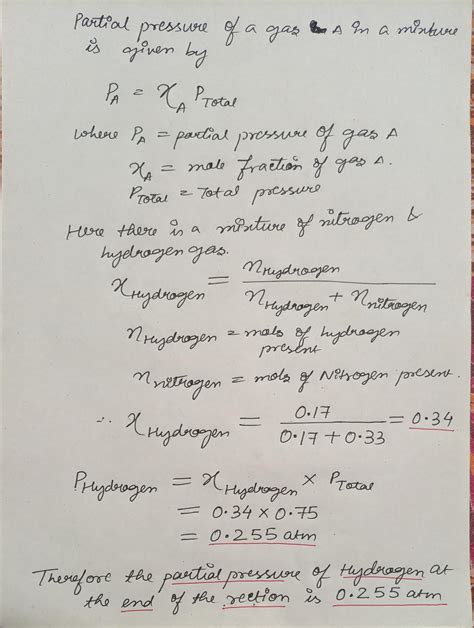 Partial pressure of a gas A in a mixture
is given by
P_A = χ_A P_Total
where P_A = partial pressure of gas A
χ_A = mole fraction of gas A.
P_Total = Total pressure
Here there is a mixture of nitrogen &
hydrogen gas.
χ_Hydrogen = n_Hydrogen / n_Hydrogen + n_nitrogen
n_Hydrogen = mols of hydrogen
present
n_nitrogen = mols of Nitrogen present.
∴ χ_Hydrogen = 0.17 / 0.17 + 0.33 = 0.34
P_Hydrogen = χ_Hydrogen × P_Total
= 0.34 × 0.75
= 0.255 atm
Therefore the partial pressure of Hydrogen at
the end of the rection is 0.255 atm